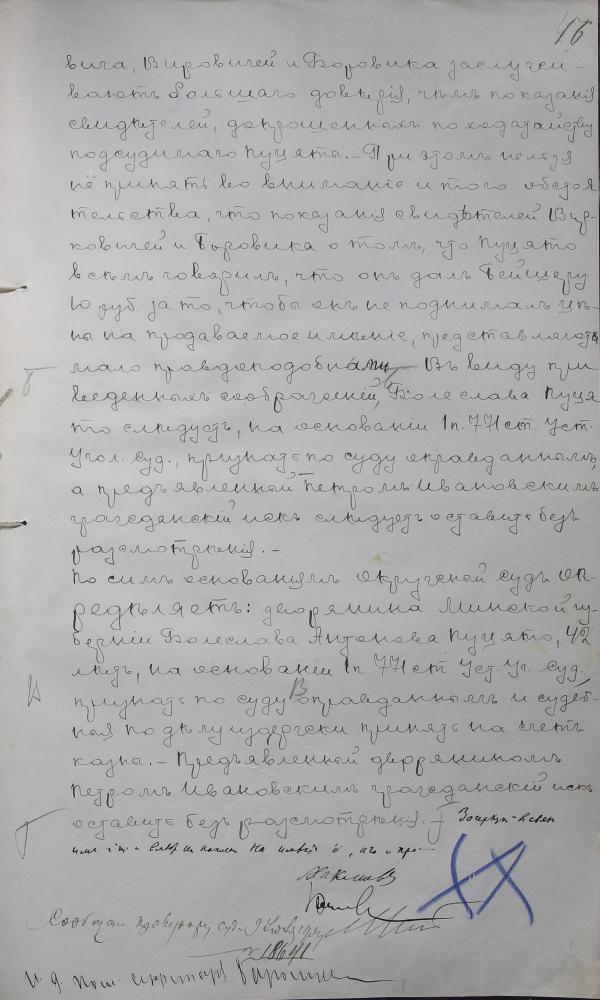 46
вича, Вировичей и Боровика заслужи-
ваютъ большаго довѣрія, чѣмъ показанія
свидѣтелей, допрошенныхъ по ходатайству
подсудимаго Пуцяты. - При этомъ нельзя
не принять во вниманіе и того обстоя
тельства, что показанія свидѣтелей Вир-
ковичей и Боровика о томъ, что Пуцято
всѣмъ говорилъ, что онъ далъ Бейшеру
10 руб. за то, чтобы онъ не поднималъ цѣ-
ны на продаваемое имѣніе, представляются
мало правдоподобными. Въ виду при
веденныхъ соображеній, Болеслава Пуця
то слѣдуетъ, на основаніи 1 п. 771 ст. Уст.
Угол. Суд., признать по суду оправданнымъ,
а предъявленный Петромъ Ивановскимъ
гражданскій искъ слѣдуетъ оставить безъ
разсмотрѣнія. -
По симъ основаніямъ Окружный Судъ оп-
редѣляетъ: дворянина Минской гу-
берніи Болеслава Антонова Пуцято, 42
лѣтъ, на основаніи 1 п. 771 ст. Уст. Уг. Суд.
признать по суду оправданнымъ и судеб-
ныя по дѣлу издержки принять на счетъ
казны. - Предъявленный дворяниномъ
Петромъ Ивановскимъ гражданскій искъ
оставить безъ разсмотрѣнія.
Сообщен Прокурору суда
№ 18641
И. д. пом. секретаря